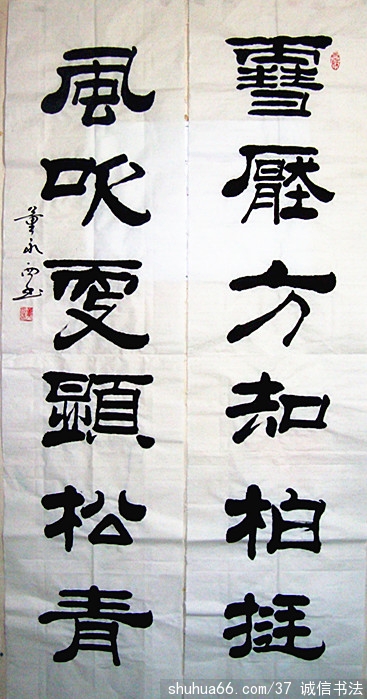 雪壓方知柏挺
風吹更顕松青
董永西书
shuhua66.com/37 诚信书法